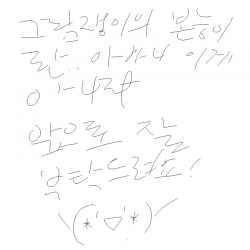 그림쟁이의 본능이
란.. 아니 이게
아니라
앞으로 잘
부탁드려요!
\(*'▽'*)/